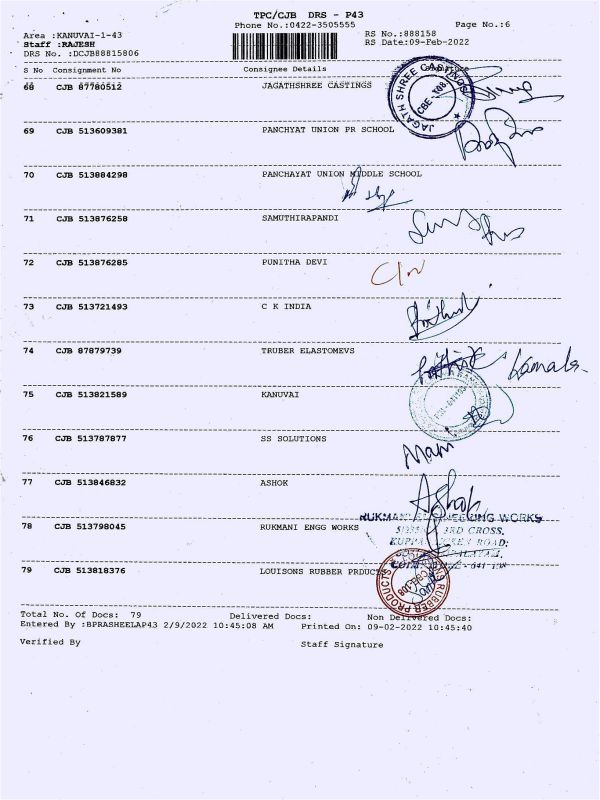 TPC/CJB DRS - P43
Phone No.:0422-3505555 Page No.:6
Area :KANUVAI-1-43 RS No.:888158
Staff :RAJESH RS Date:09-Feb-2022
DRS No. :DCJB88815806
S No Consignment No Consignee Details Signature
68 CJB 87780512 JAGATHSHREE CASTINGS
JAGATH SHREE CASTINGS
CBE - 108
69 CJB 513609381 PANCHYAT UNION PR SCHOOL
70 CJB 513884298 PANCHAYAT UNION MIDDLE SCHOOL
71 CJB 513876258 SAMUTHIRAPANDI
72 CJB 513876285 PUNITHA DEVI
73 CJB 513721493 C K INDIA
74 CJB 87879739 TRUBER ELASTOMEVS
75 CJB 513821589 KANUVAI
76 CJB 513787877 SS SOLUTIONS
Mani
77 CJB 513846832 ASHOK
Ashok
78 CJB 513798045 RUKMANI ENGG WORKS
RUKMANI ENGINEERING WORKS
3RD CROSS,
ROAD,
79 CJB 513818376 LOUISONS RUBBER PRDUCTS
RUBBER PRODUCTS
Total No. Of Docs: 79 Delivered Docs: Non Delivered Docs:
Entered By :BPRASHEELAP43 2/9/2022 10:45:08 AM Printed On: 09-02-2022 10:45:40
Verified By Staff Signature